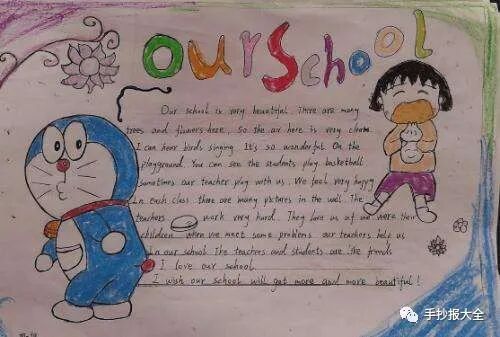 Our School
Our school is very beautiful. There are many
trees and flowers here, So the air here is very clean
I can hear birds singing. It's so wonderful. On the
playground. You can see the students play basketball
sometimes our teacher play with us. We feel very happy
In each class there are many pictures in the wall. The
teachers work very hard. They love us as we were their
children when we meet some problems our teachers help us
In our school The teachers and students are the friends
I love our school
I wish our school will get more and more beautiful!
手抄报大全